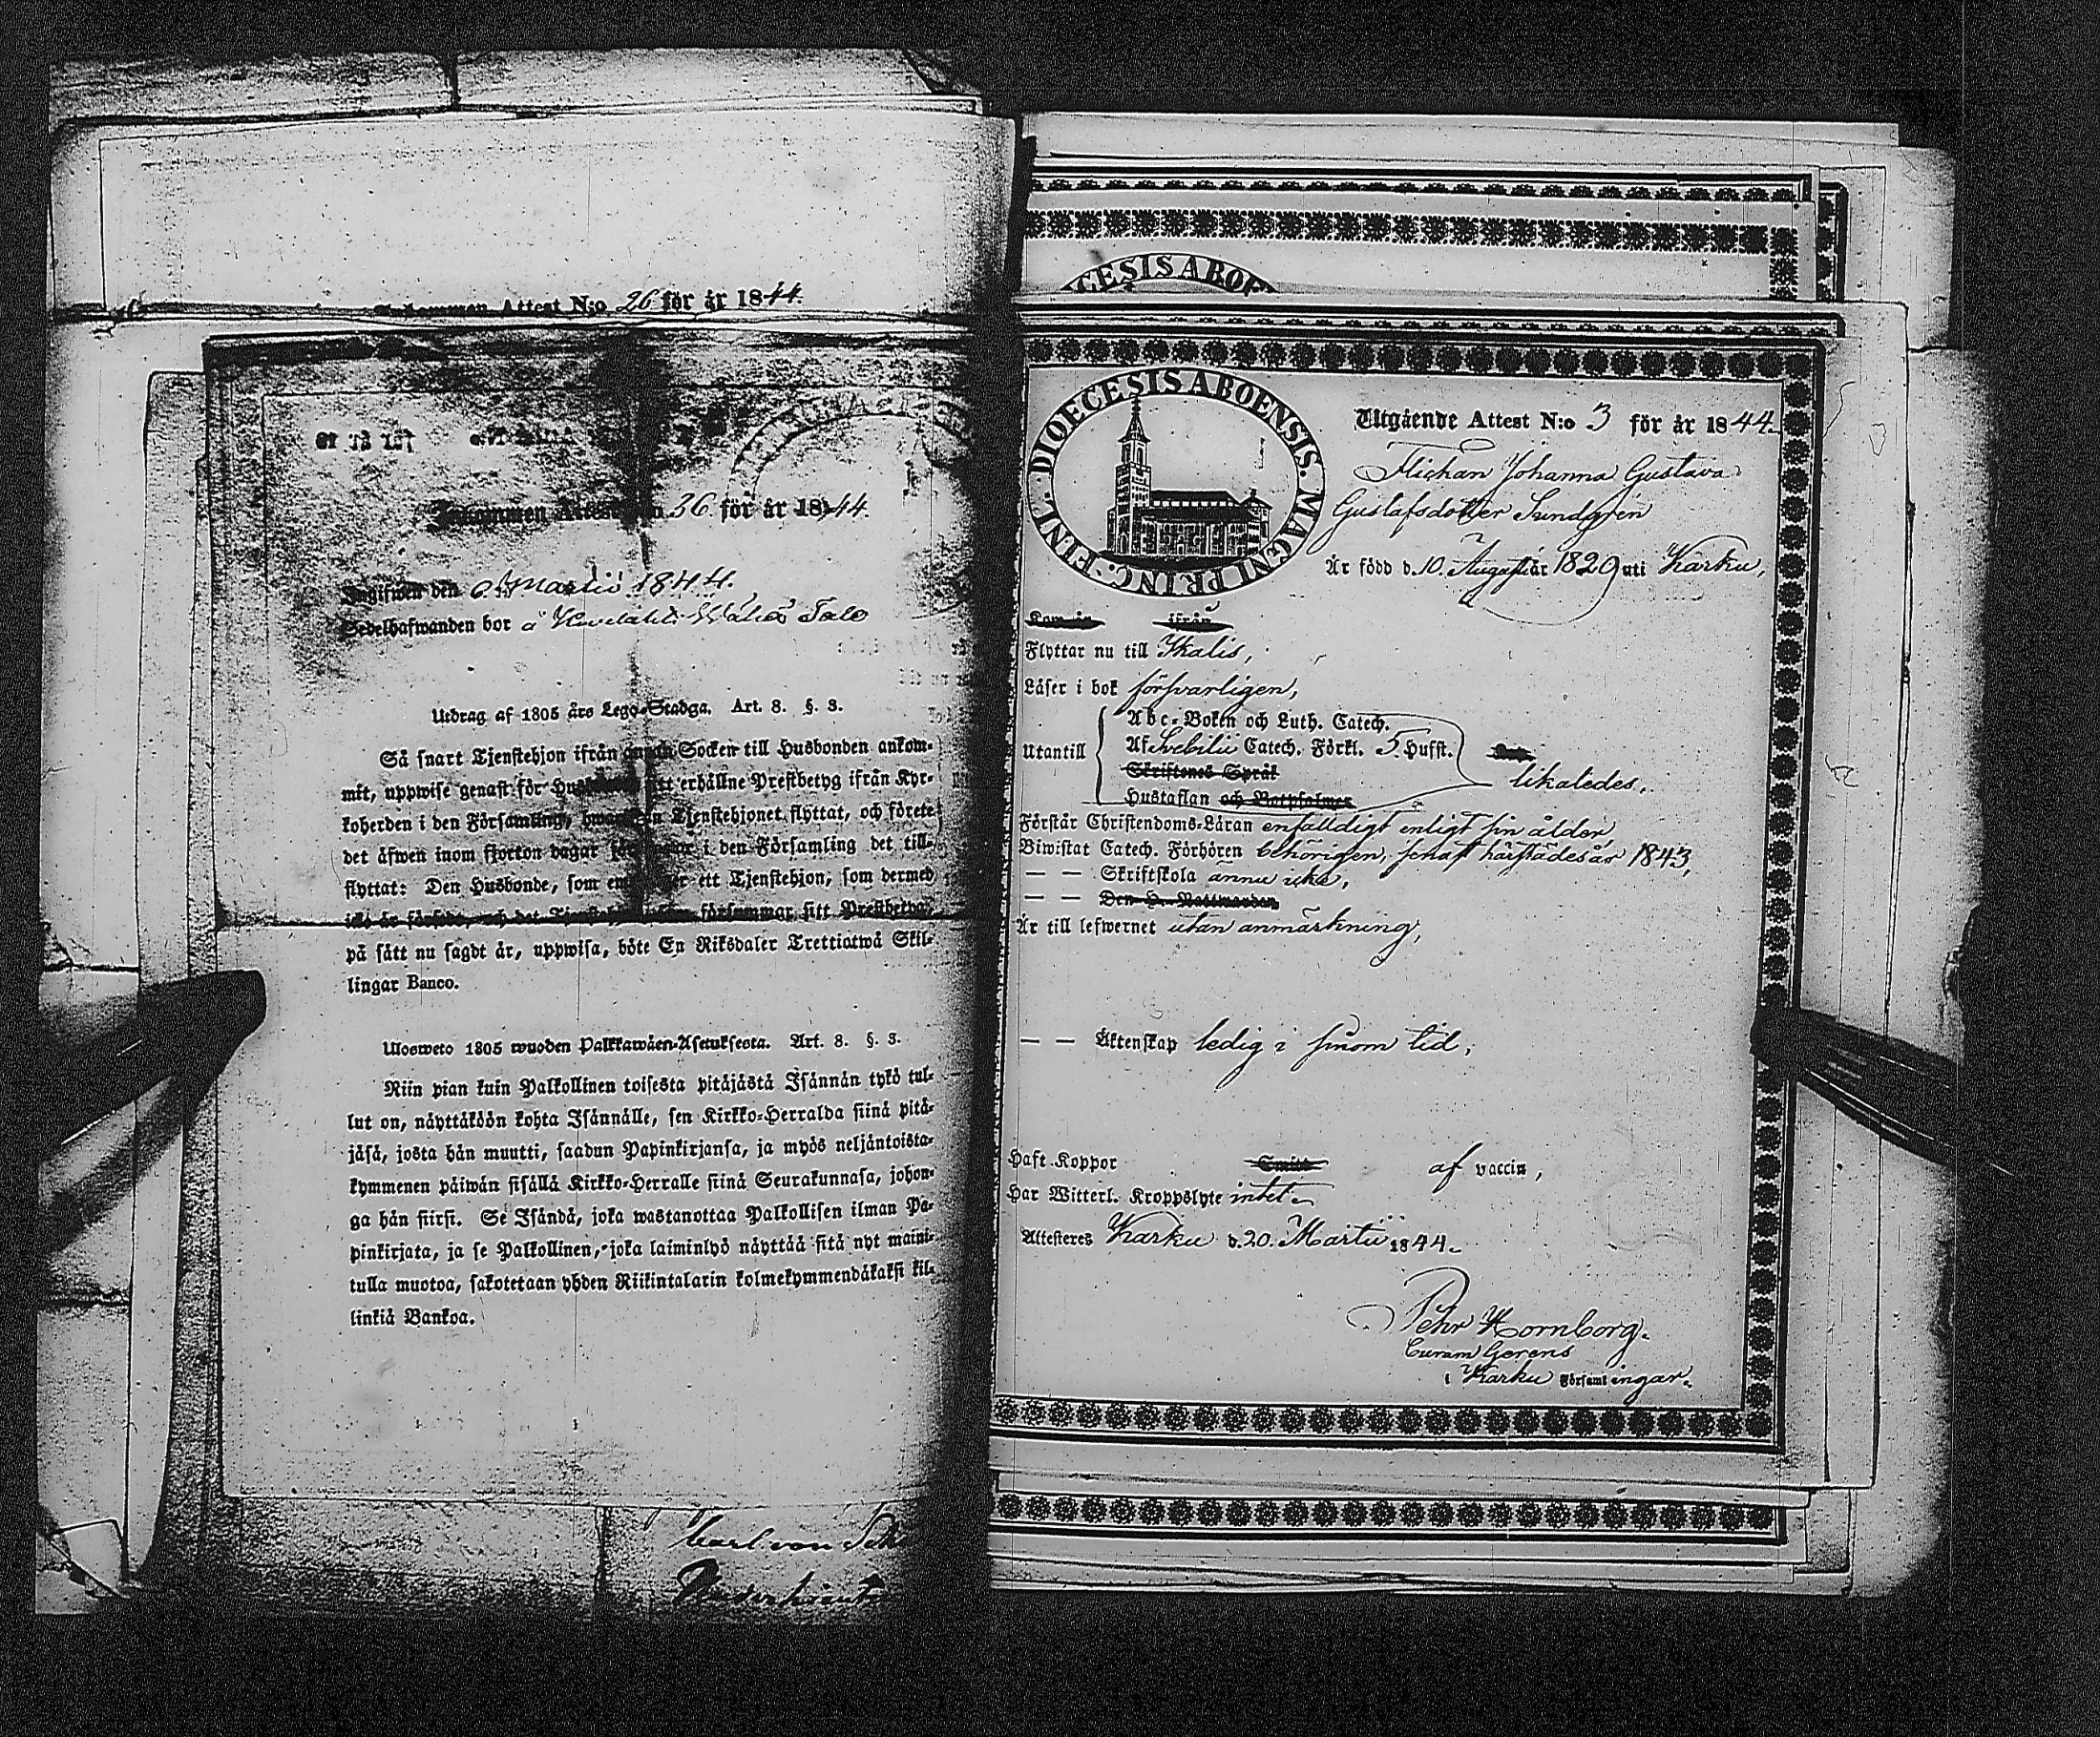 Inkommen Attest N:o 26 för år 1844.
Inkommen Attest N:o 36 för år 1844.
Ingifwen den Martii 1844.
Sedelhafwanden bor å Talo
Utdrag af 1805 års Lego-Stadga. Art. 8. §. 3.
Så snart Tjenstehjon ifrån annan Socken till Husbonden ankom-
mit, uppwise genast för Husbonden sitt erhållne Prestbetyg ifrån Kyr-
koherden i den Församling, hwarifrån Tjenstehjonet flyttat, och förete
det äfwen inom fjorton dagar för i den Församling det till-
flyttat: Den Husbonde, som ett Tjenstehjon, som dermed
icke är försedt, och det Tjenstehjon, som försummar sitt Prestbetyg,
på sätt nu sagdt är, uppwisa, böte En Riksdaler Trettiotwå Skil-
lingar Banco.
Ulosweto 1805 wuoden Palkkawäen-Asetuksesta. Art. 8. §. 3.
Niin pian kuin Palkollinen toisesta pitäjästä Isännän tykö tul-
lut on, näyttäköön kohta Isännälle, sen Kirkko-Herralda siinä pitä-
jäsä, josta hän muutti, saadun Papinkirjansa, ja myös neljäntoista-
kymmenen päiwän sisällä Kirkko-Herralle siinä Seurakunnasa, johon-
ga hän siirsi. Se Isändä, joka wastanottaa Palkollisen ilman Pa-
pinkirjata, ja se Palkollinen, joka laiminlyö näyttää sitä nyt maini-
tulla muotoa, sakotetaan yhden Riikintalarin kolmekymmendäkaksi kil-
linkiä Bankoa.
Carl von
DIOECESIS ABOENSIS. MAGNI PRINC. FINL.
Utgående Attest N:o 3 för år 1844.
Flickan Johanna Gustava
Gustafsdotter Sundgrén
Är född d. 10. Augusti år 1829 uti Karku,
Kom år ifrån
Flyttar nu till Ikalis,
Läser i bok försvarligen,
Utantill
Abc-Boken och Luth. Catech.
Af Svebilii Catech. Förkl. 5. Hufst.
Skriftenes Språk
Hustaflan och Botpsalmer
likaledes,
Förstår Christendoms-Läran enfalldigt enligt sin ålder,
Biwistat Catech. Förhören behörigen, senast härstädes år 1843,
— — Skriftskola ännu icke,
— — Den H. Nattwarden
Är till lefwernet utan anmärkning,
— — Äktenskap ledig i sinom tid,
Haft Koppor Smitt af vaccin,
Har Witterl. Kroppslyte intet.
Attesteres Karku d. 20. Martii 1844.
Pehr Hornborg.
Curam Gerens
i Karku Församlingar.